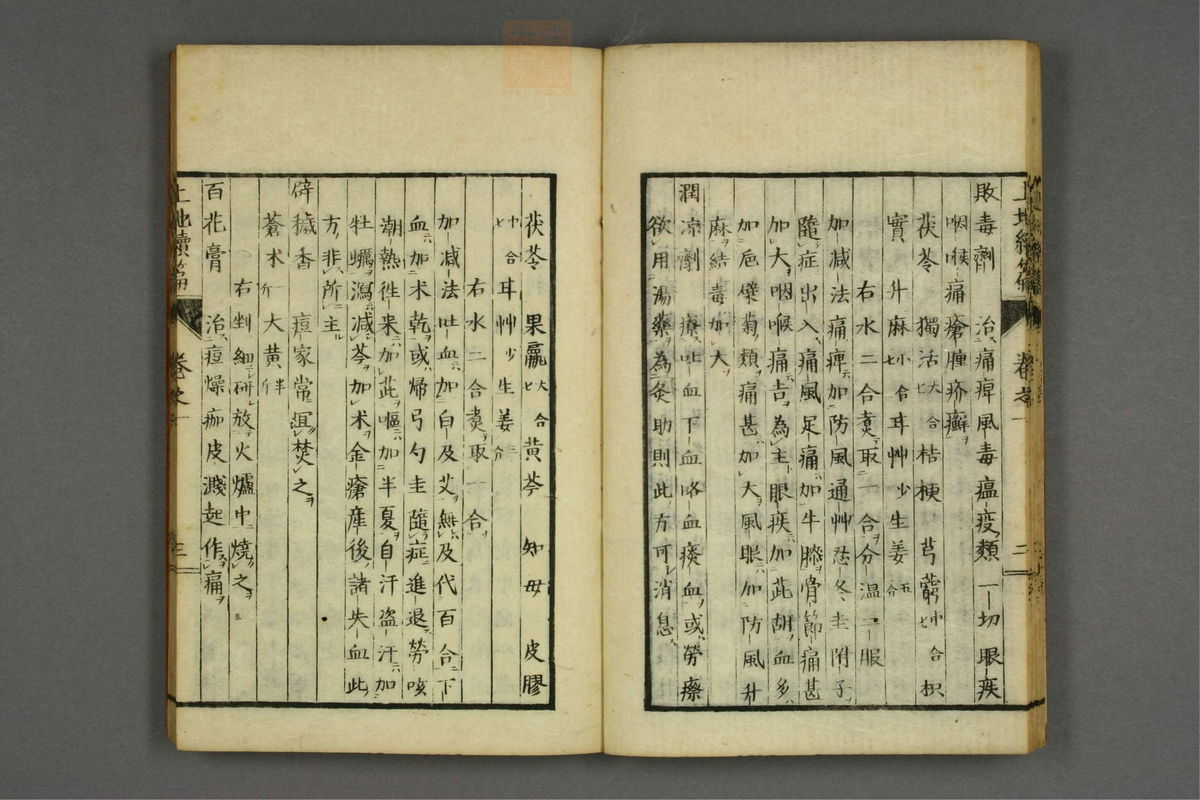 敗毒劑 治痛痺風毒瘟疫類一切眼疾
咽喉痛瘡腫疥癬
茯苓 獨活大七合 桔梗 芎藭中七合 枳
實 升麻小七合 耳艸少 生姜五分
右水二合煑取一合分温二服
加减法痛痺加防風通艸忍冬圭附子
隨症出入痛風足痛加牛膝骨節痛甚
加大咽喉痛吉為主眼疾加茈胡血多
加巵檗菊類痛甚加大風眼加防風升
麻結毒加大
潤凉劑 療吐血下血咯血痰血或勞瘵
欲用湯藥為灸助則此方可消息
茯苓 果蠃大七合 黄芩 知母 皮膠
中七合 耳艸少 生姜三分
右水二合煑取一合
加减法吐血加白及艾無及代百合下
血加术乾或帰弓勺圭隨症進退勞咳
潮熱徃来加茈嘔加半夏自汗盗汗加
牡蠣瀉减芩加术金瘡産後諸失血此
方非所主
辟穢香 痘家常冝焚之
蒼术一斤 大黄半斤
右剉細研放火爐中燒之
百花膏 治痘燥痂皮濺起作痛
土地續篇 卷之一 三